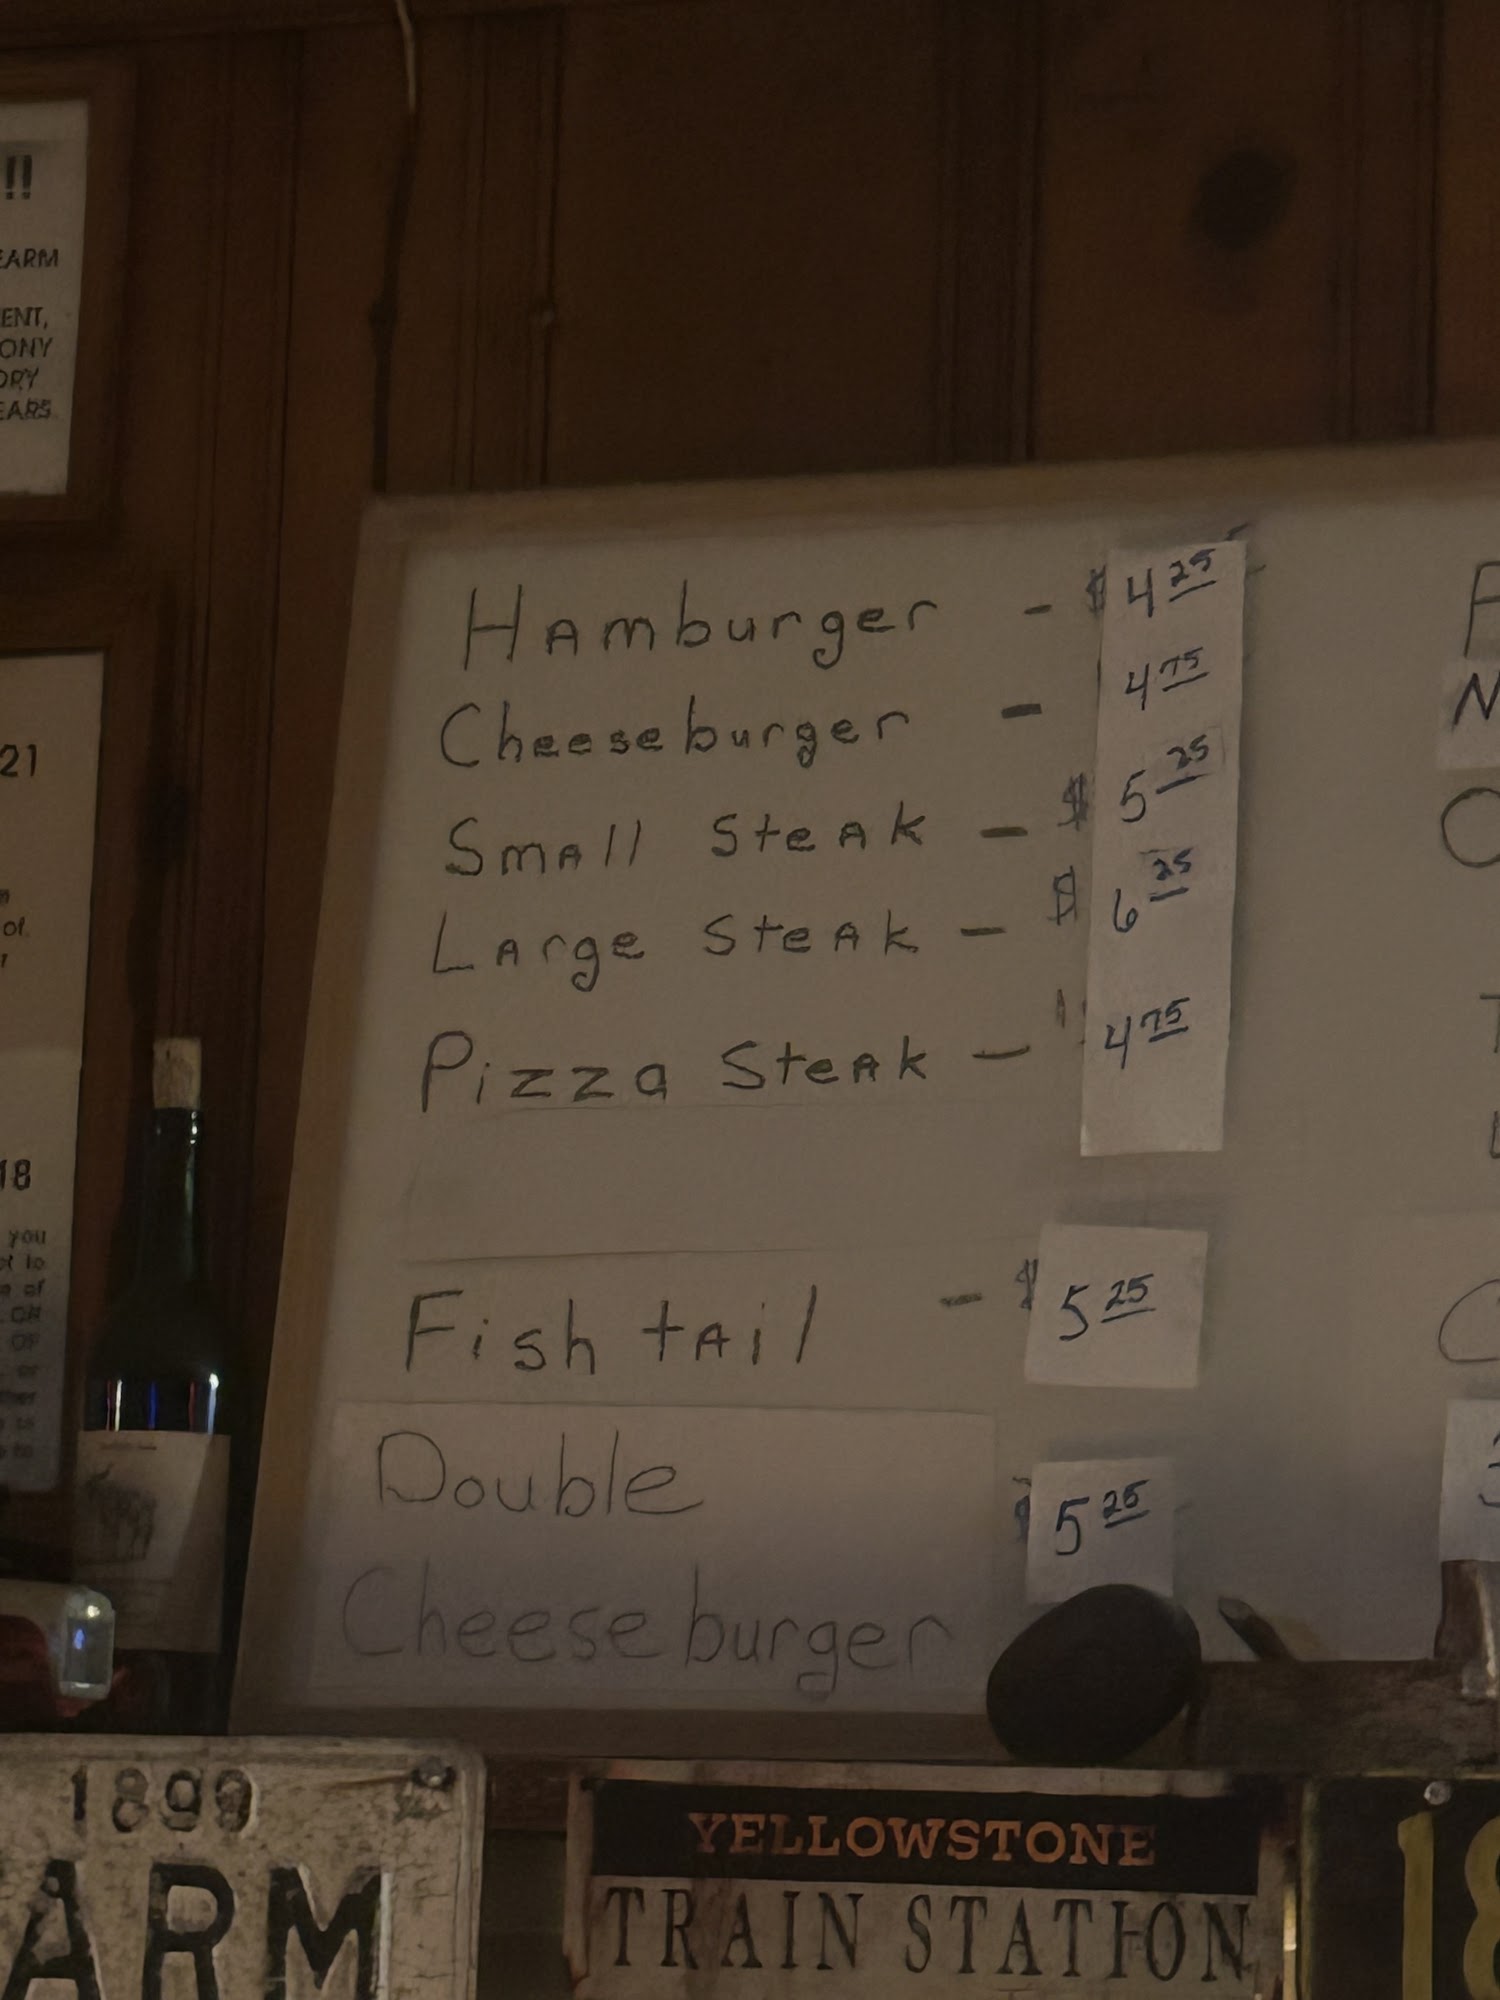 !!
EARM
ENT,
ONY
ORY
EARS.
21
of
18
you
to
of
OR
OF
or
Hamburger - $ 4 25
Cheeseburger - 4 75
Small Steak - $ 5 25
Large Steak - $ 6 25
Pizza Steak - 4 75
Fish tail - $ 5 25
Double
Cheeseburger $ 5 25
1899
ARM
YELLOWSTONE
TRAIN STATION
18